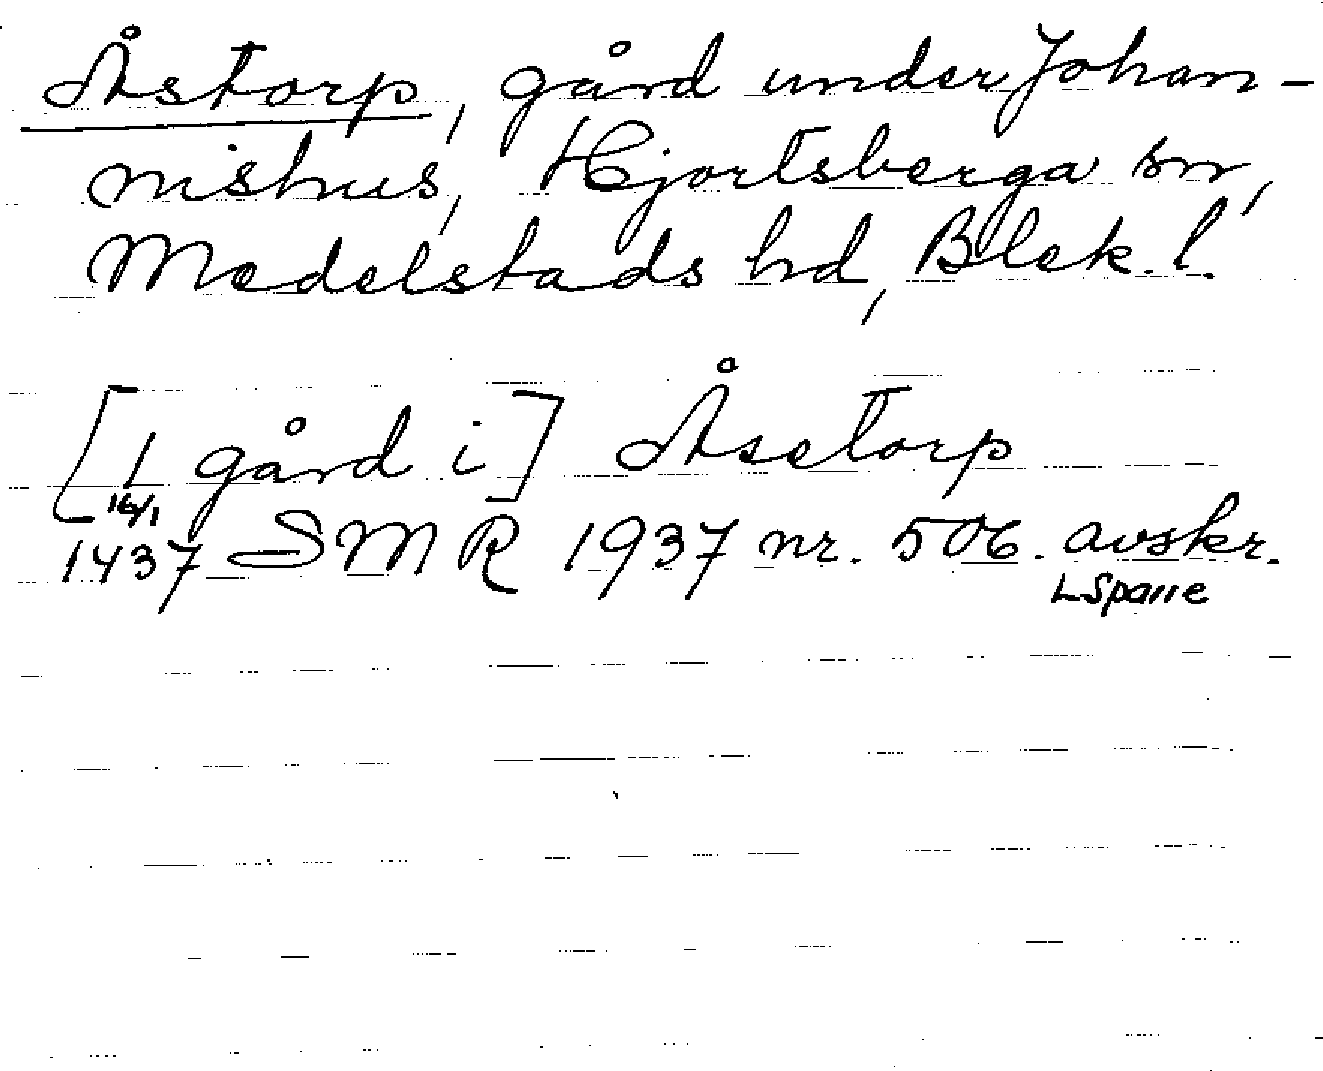 Åstorp, gård under Johan-
nishus, Hjortsberga sn,
Medelstads hd, Blek. l.
[1 gård i] Åsetorp
16/1
1437 SMR 1937 nr. 506. avskr.
LSparre